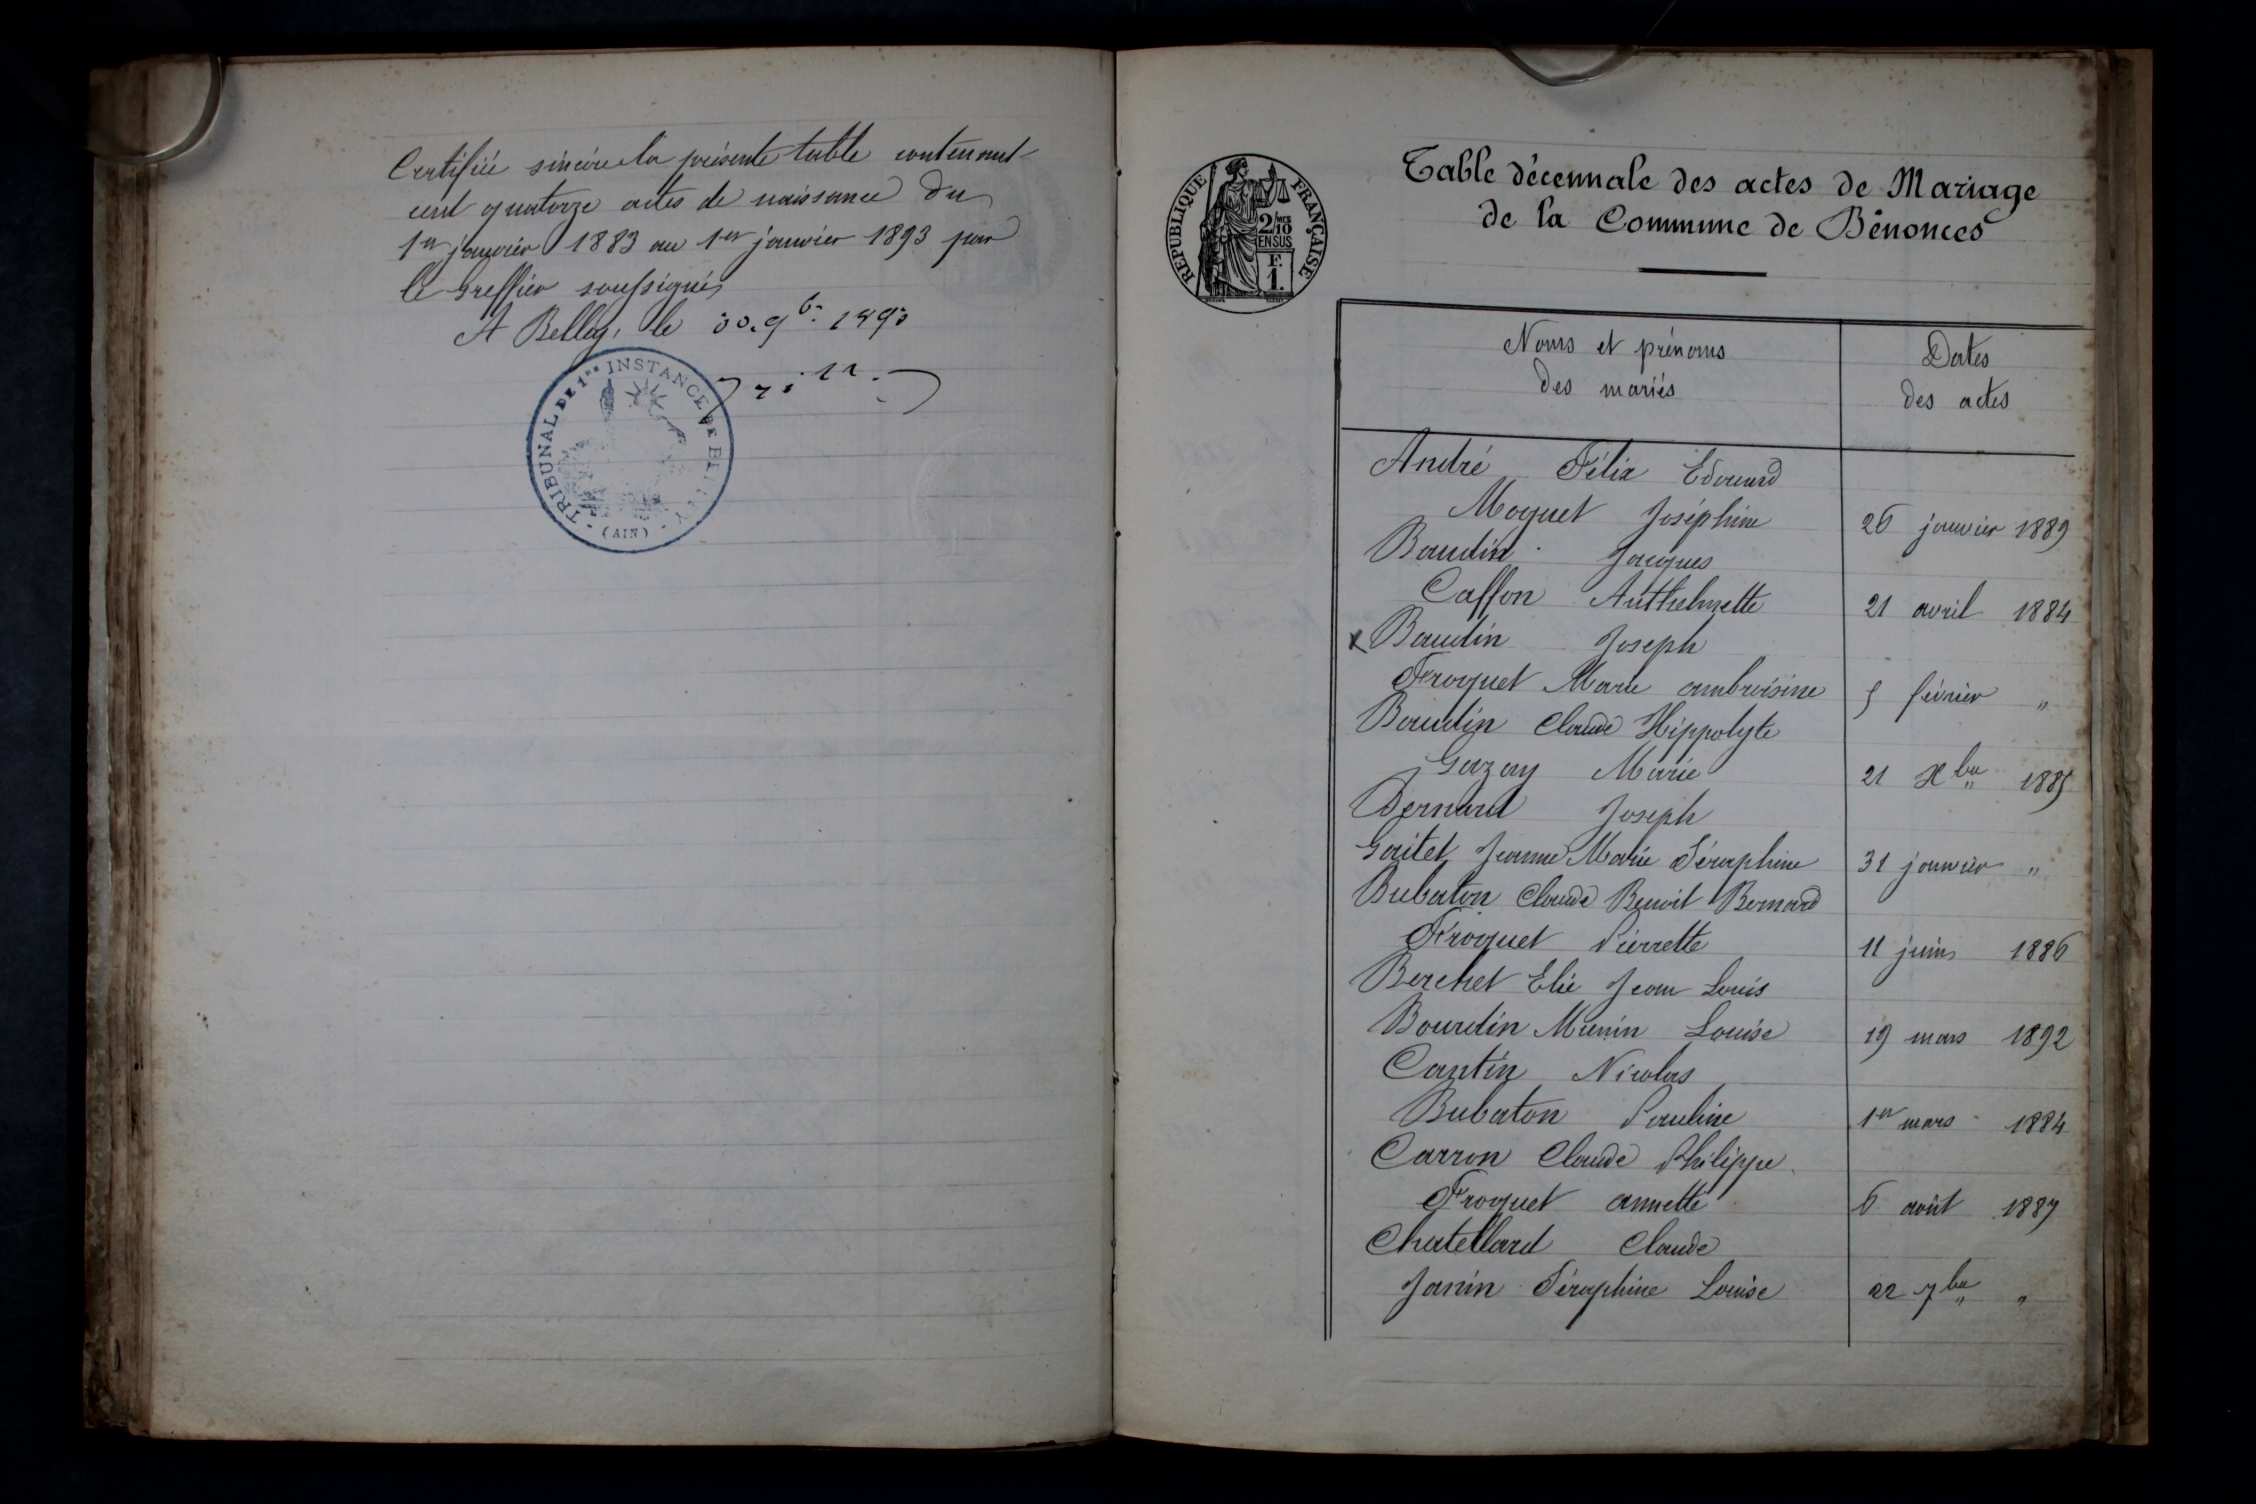 Certifiée sincère la présente table contenant
cent quatorze actes de naissance du
1er janvier 1883 au 1er janvier 1893 par
le Greffier soussigné
A Belley, le 30. 9b. 1893
TRIBUNAL DE 1re INSTANCE DE BELLEY
(AIN)
RÉPUBLIQUE FRANÇAISE
2/10
EN SUS
F.
1.
Table décennale des actes de Mariage
de la Commune de Bénonces
Noms et prénoms
des mariés
Dates
des actes
André Félix Edouard
Moquet Joséphine 26 janvier 1889
Baudin Jacques
Caffon Anthelmette 21 avril 1884
x Baudin Joseph
Froquet Marie ambroisine 5 février "
Baudin Claude Hippolyte
Gazay Marie 21 Xbre 1885
Bernard Joseph
Goitet Jeanne Marie Séraphine 31 janvier "
Bubaton Claude Benoit Bernard
Froquet Pierrette 11 juin 1886
Berchet Elie Jean Louis
Bourdin Munin Louise 19 mars 1892
Cantin Nicolas
Bubaton Pauline 1er mars 1884
Carron Claude Philippe
Froquet annette 6 août 1887
Chatellard Claude
Janin Séraphine Louise 22 7bre "